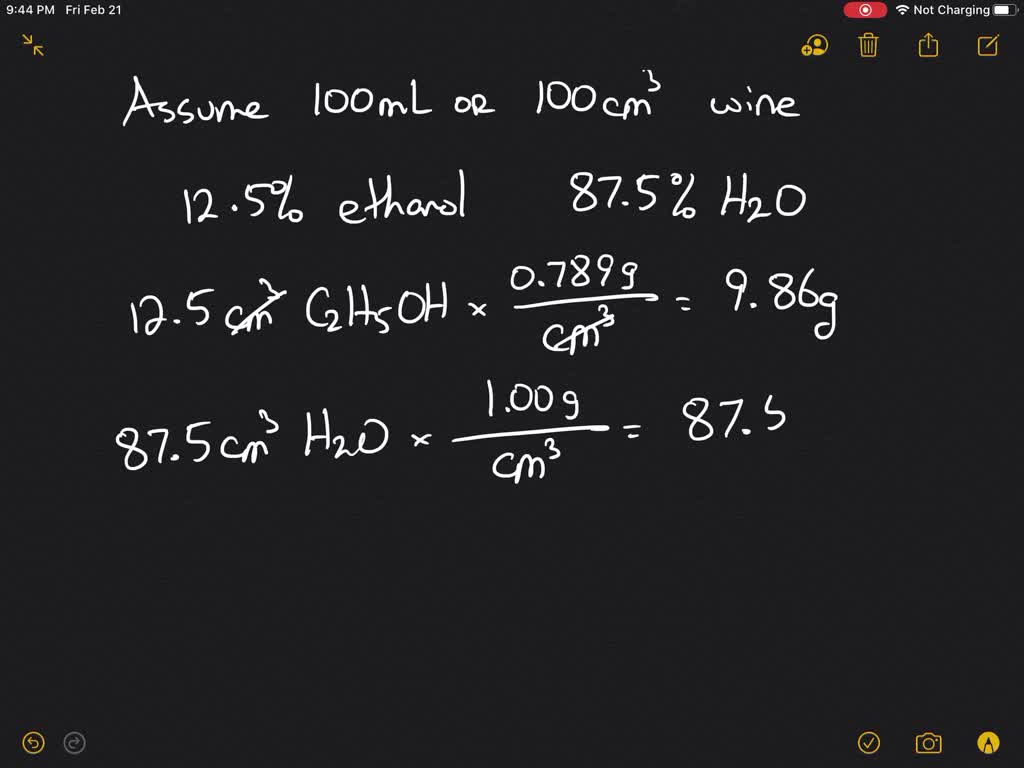 9:44 PM Fri Feb 21
Not Charging
Assume 100mL or 100cm³ wine
12.5% ethanol 87.5% H2O
12.5 cm³ C2H5OH × 0.789g / cm³ = 9.86g
87.5cm³ H2O × 1.00g / cm³ = 87.5